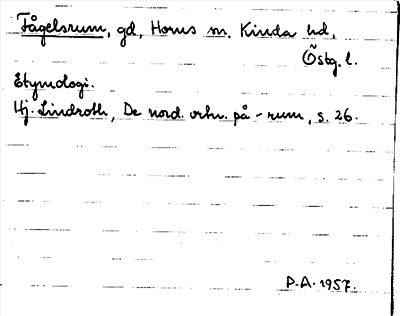 Fågelsrum, gd, Horns sn. Kinda hd,
Östg. l.
Etymologi.
Hj. Lindroth, De nord. ortn. på -rum, s. 26.
P.A. 1957.